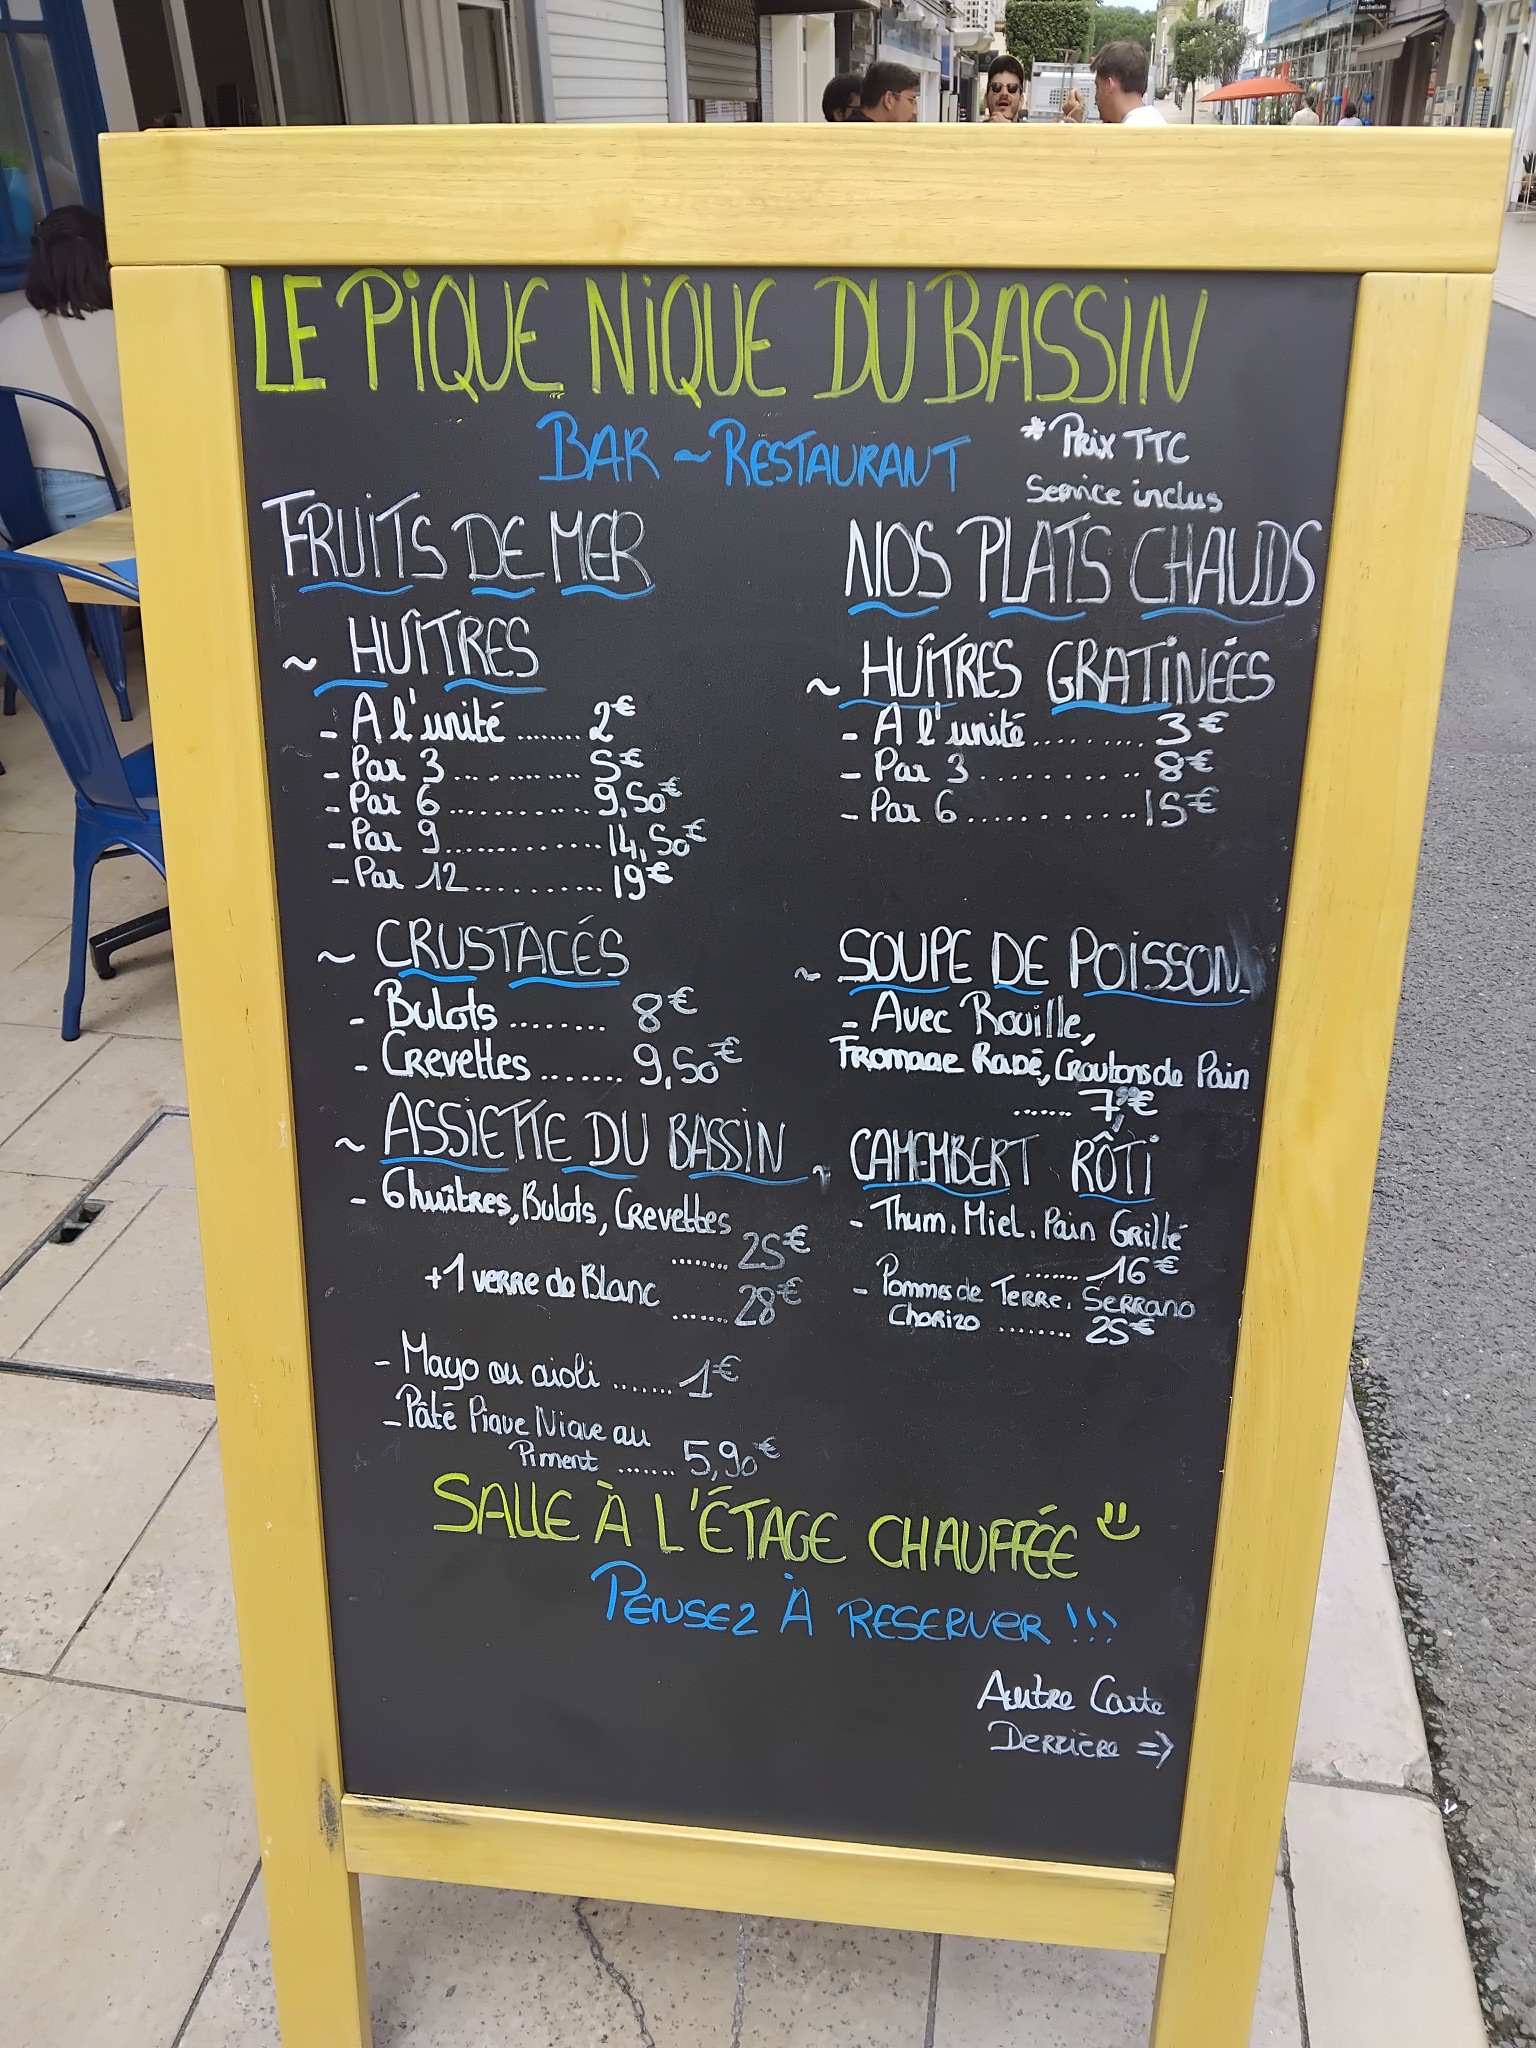 LE PIQUE NIQUE DU BASSIN
BAR ~ RESTAURANT
* Prix TTC
Service inclus
FRUITS DE MER
~ HUÎTRES
- A l'unité ........ 2€
- Par 3 ............ 5€
- Par 6 ............ 9,50€
- Par 9 ............ 14,50€
- Par 12 ............ 19€
~ CRUSTACÉS
- Bulots ........ 8€
- Crevettes ....... 9,50€
~ ASSIETTE DU BASSIN
- 6 huîtres, Bulots, Crevettes
....... 25€
+ 1 verre de Blanc
....... 28€
- Mayo ou aioli ....... 1€
- Pâté Pique Nique au
Piment ....... 5,90€
NOS PLATS CHAUDS
~ HUÎTRES GRATINÉES
- A l'unité .......... 3€
- Par 3 ........... 8€
- Par 6 ............ 15€
~ SOUPE DE POISSON
- Avec Rouille,
Fromage Rapé, Croutons de Pain
....... 7,90€
~ CAMEMBERT RÔTI
- Thym. Miel. Pain Grillé
....... 16€
- Pommes de Terre. Serrano
Chorizo ........ 25€
SALLE À L'ÉTAGE CHAUFFÉE
PENSEZ À RESERVER !!!
Autre Carte
Derrière =>